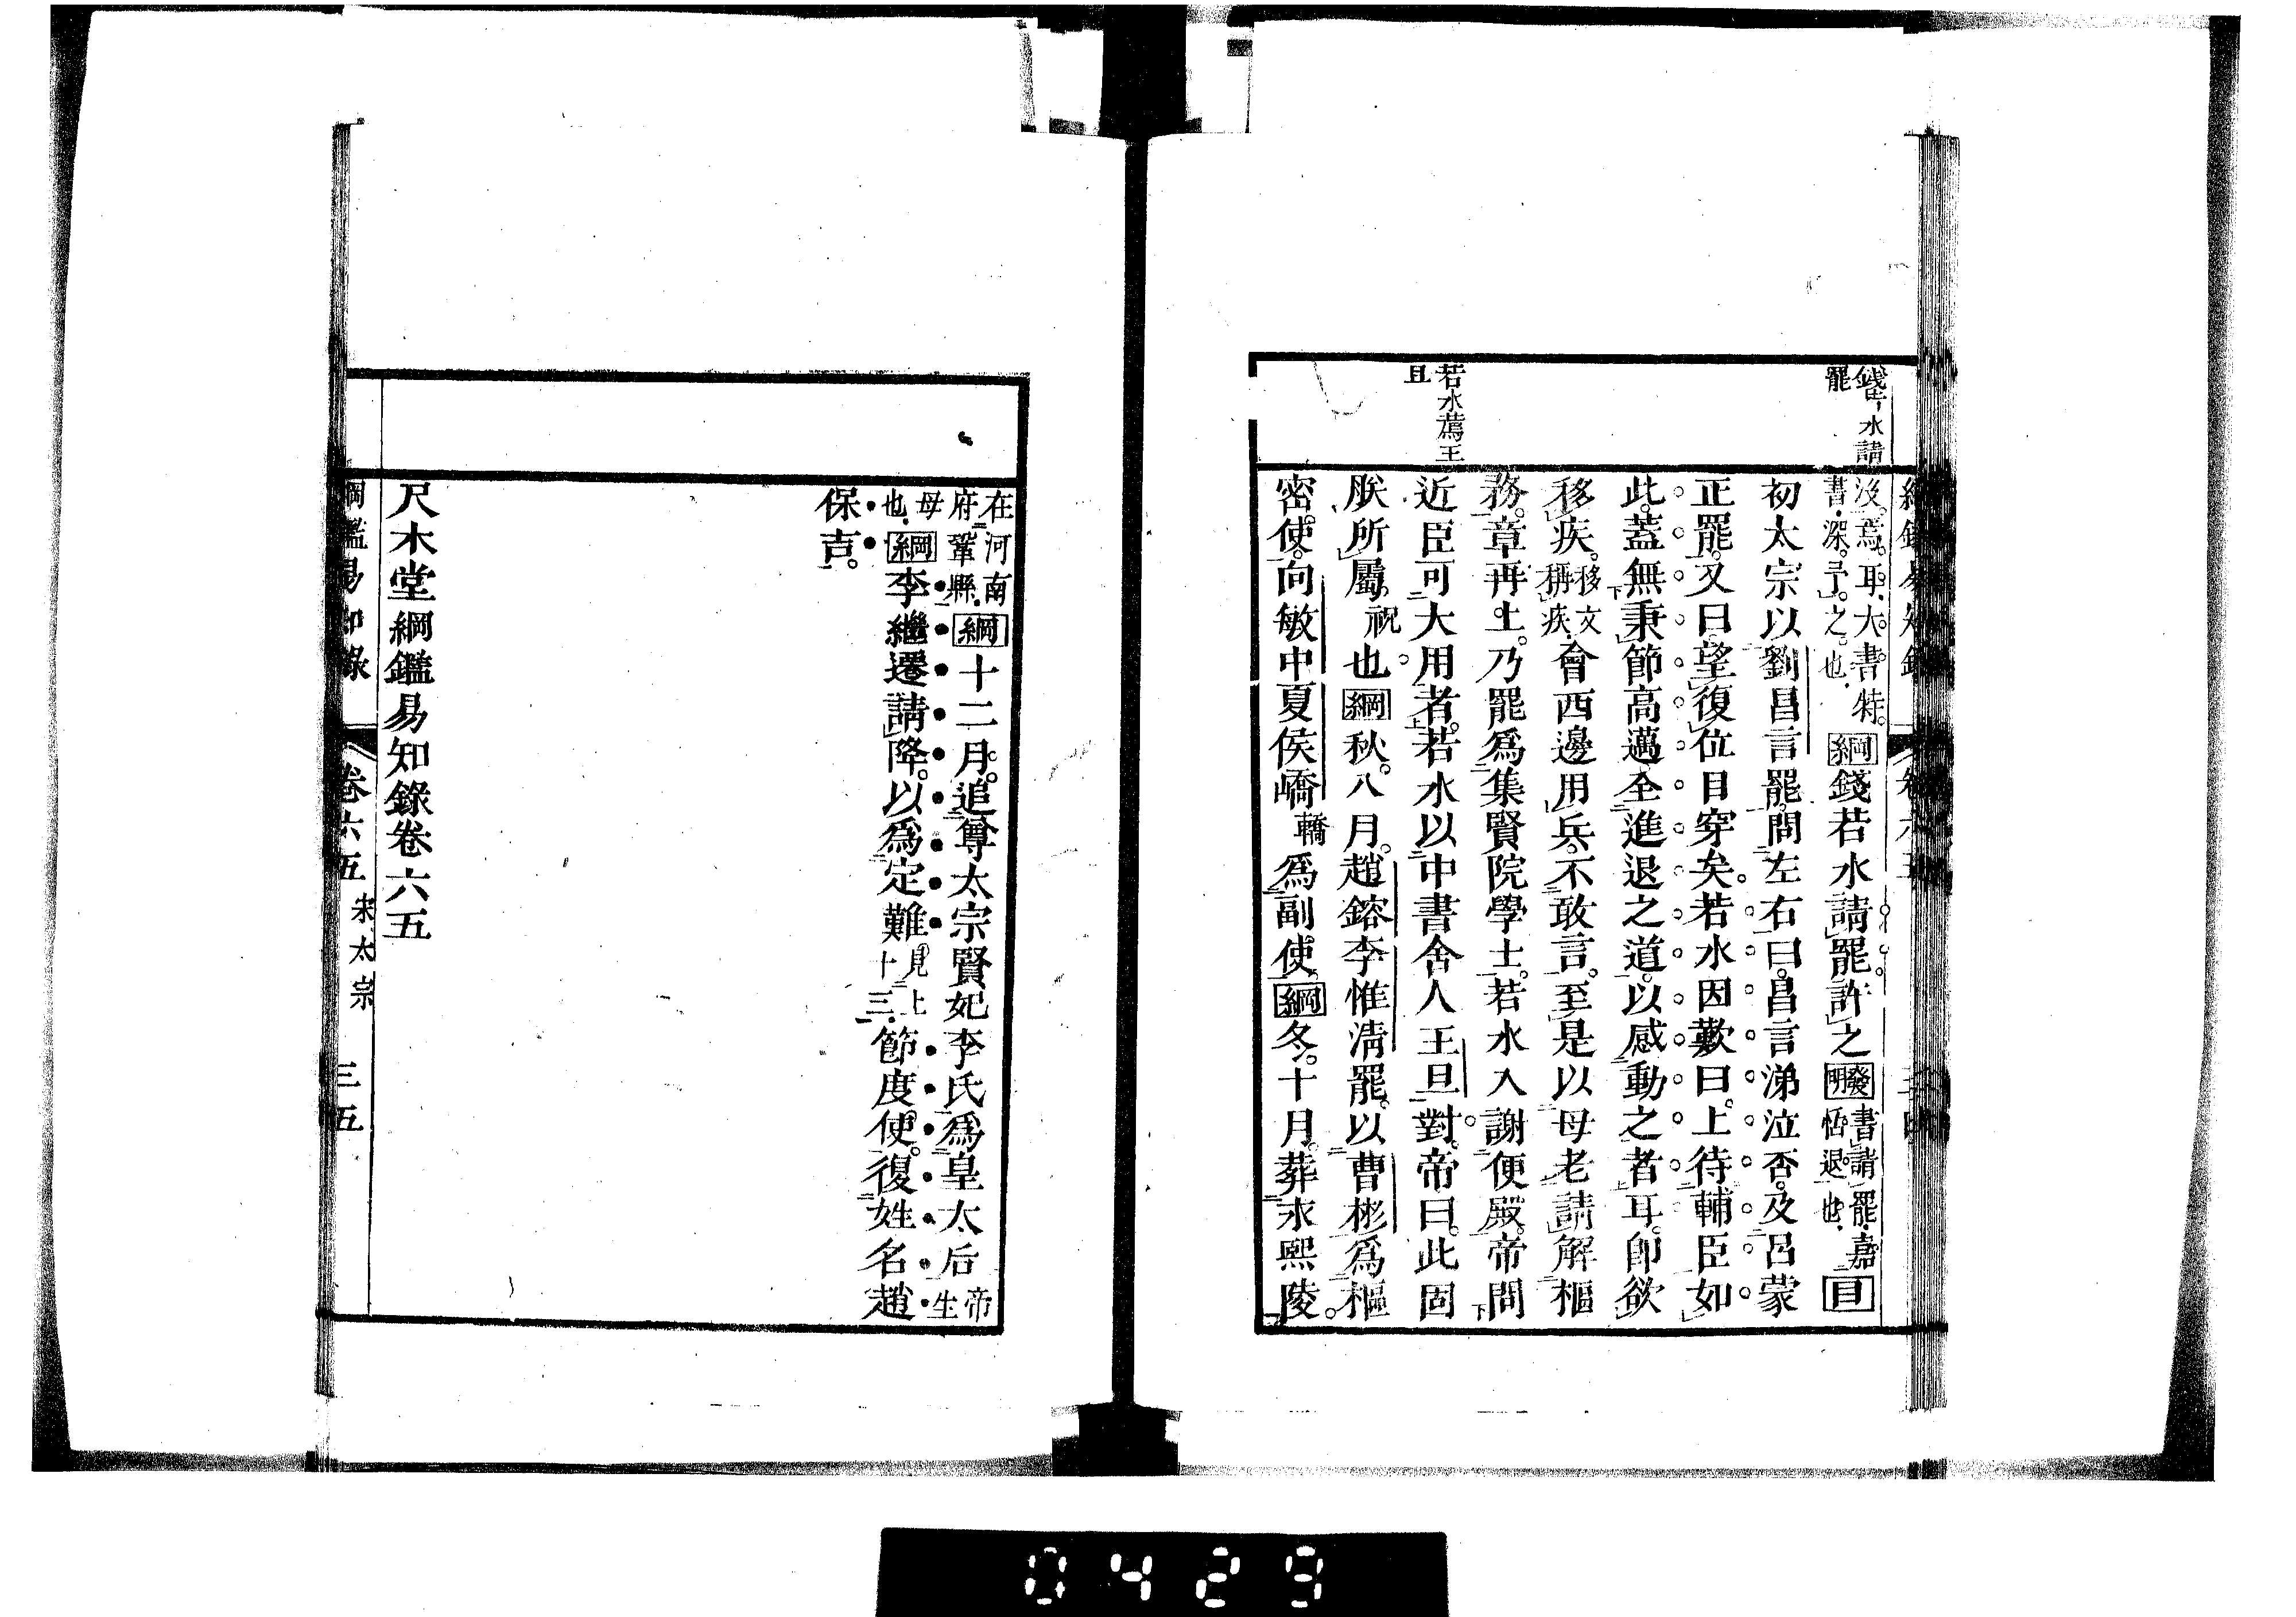 錢若水請
罷
若水薦王
旦
沒焉耳大書特
書深予之也 綱 錢若水請罷許之 發明 書請罷嘉
恬退也 目
初太宗以劉昌言罷問左右曰昌言涕泣否及呂蒙
正罷又曰望復位目穿矣若水因歎曰上待輔臣如
此蓋無秉節高邁全進退之道以感動之者耳卽欲
移疾 移文稱疾 會西邊用兵不敢言至是以母老請解樞
務章再上乃罷爲集賢院學士若水入謝便殿帝問
近臣可大用者若水以中書舍人王旦對帝曰此固
朕所屬 祝 也 綱 秋八月趙鎔李惟淸罷以曹彬爲樞
密使向敏中夏侯嶠 轎 爲副使 綱 冬十月葬永熙陵
在河南
府鞏縣 綱 十二月追尊太宗賢妃李氏爲皇太后 帝生
母也 綱 李繼遷請降以爲定難 見上十三 節度使復姓名趙
保吉
尺木堂綱鑑易知錄卷六五
綱鑑易知錄 卷六五 宋太宗 三五
0429